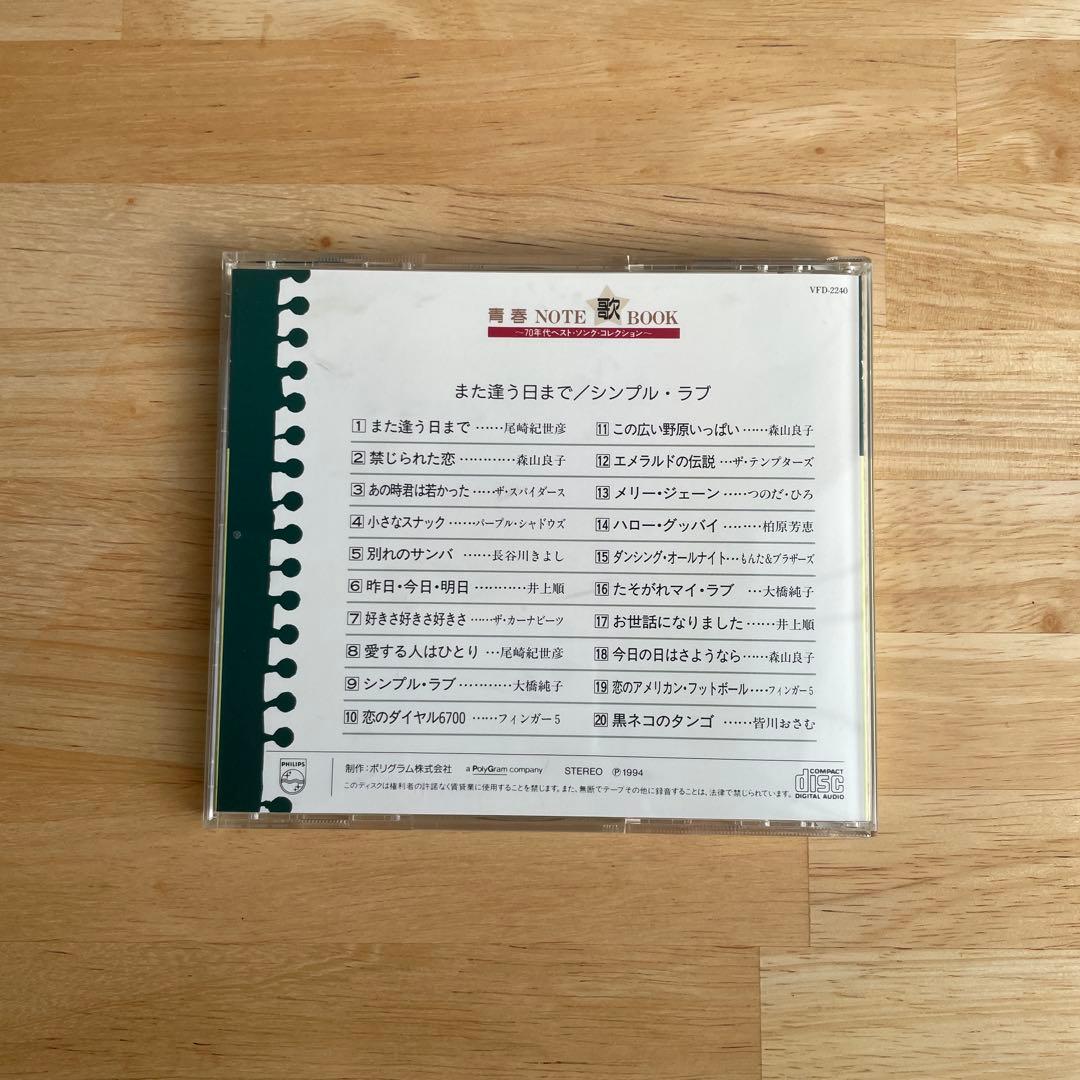 VFD-2240
青春 NOTE 歌 BOOK
〜70年代ベスト・ソング・コレクション〜
また逢う日まで／シンプル・ラブ
1 また逢う日まで ……尾崎紀世彦
2 禁じられた恋 …………森山良子
3 あの時君は若かった ……ザ・スパイダース
4 小さなスナック ……パープル・シャドウズ
5 別れのサンバ ……長谷川きよし
6 昨日・今日・明日 …………井上順
7 好きさ好きさ好きさ ……ザ・カーナビーツ
8 愛する人はひとり …尾崎紀世彦
9 シンプル・ラブ …………大橋純子
10 恋のダイヤル6700 ……フィンガー5
11 この広い野原いっぱい ……森山良子
12 エメラルドの伝説 …ザ・テンプターズ
13 メリー・ジェーン ……つのだ・ひろ
14 ハロー・グッバイ ………柏原芳恵
15 ダンシング・オールナイト …もんた&ブラザーズ
16 たそがれマイ・ラブ …大橋純子
17 お世話になりました ……井上順
18 今日の日はさようなら ……森山良子
19 恋のアメリカン・フットボール ……フィンガー5
20 黒ネコのタンゴ ……皆川おさむ
PHILIPS
制作：ポリグラム株式会社 a PolyGram company STEREO Ⓟ1994
このディスクは権利者の許諾なく賃貸業に使用することを禁じます。また、無断でテープその他に録音することは、法律で禁じられています。
COMPACT
disc
DIGITAL AUDIO